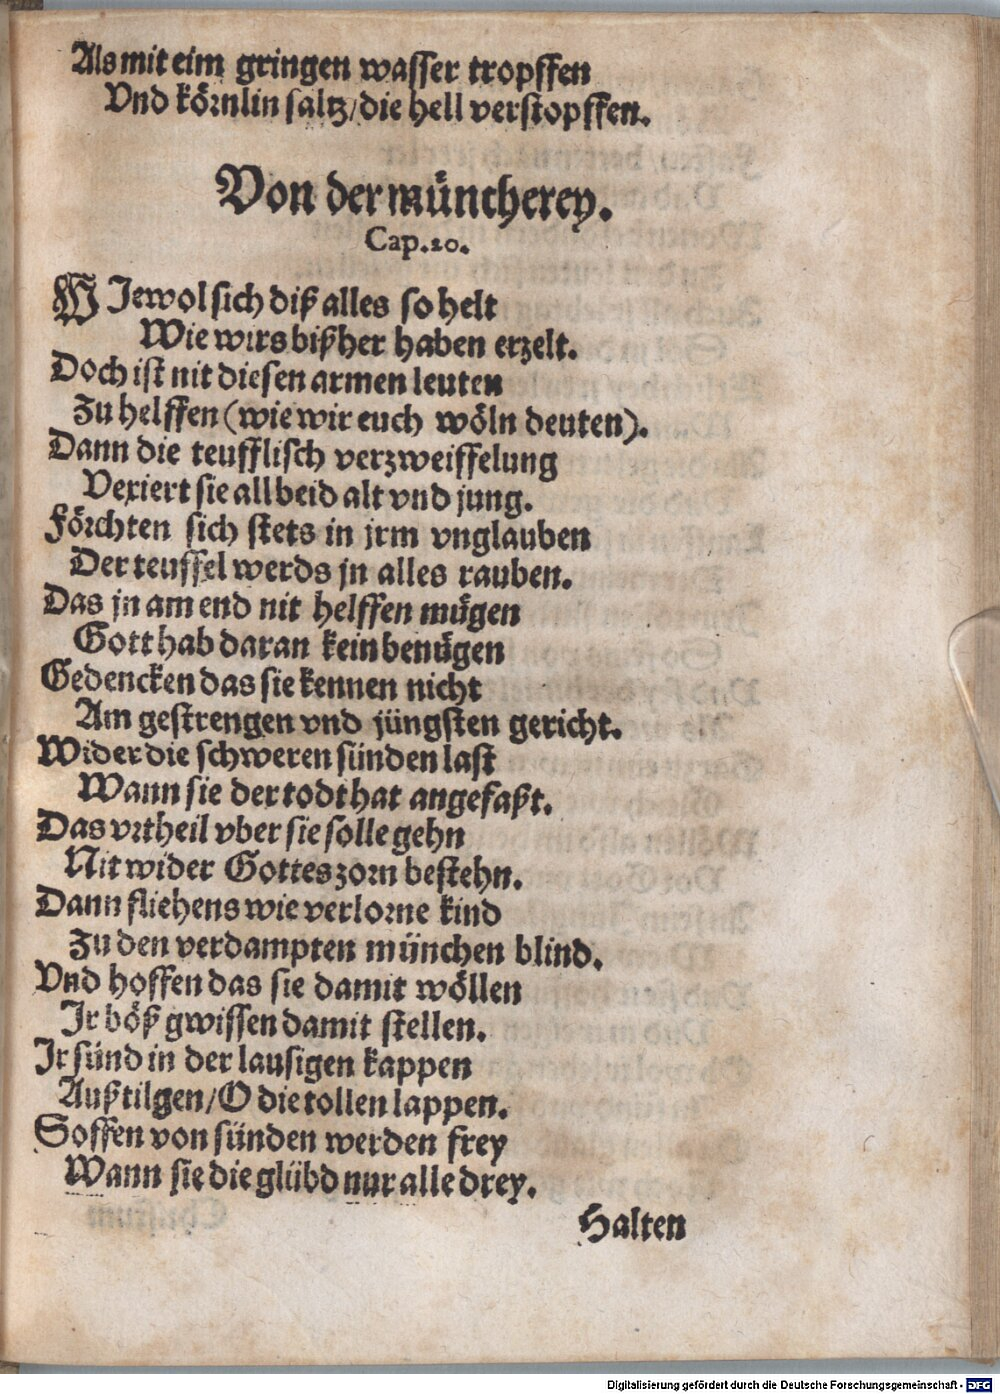 Als mit eim gringen wasser tropffen
Vnd körnlin saltz/die hell verstopffen.
Von der müncherey.
Cap.20.
WJewol sich diß alles so helt
Wie wirs bißher haben erzelt.
Doch ist nit diesen armen leuten
Zu helffen (wie wir euch wöln deuten).
Dann die teufflisch verzweiffelung
Vexiert sie all beid alt vnd jung.
Förchten sich stets in jrm vnglauben
Der teuffel werds jn alles rauben.
Das jn am end nit helffen mügen
Gott hab daran kein benügen
Gedencken das sie kennen nicht
Am gestrengen vnd jüngsten gericht.
Wider die schweren sünden last
Wann sie der todt hat angefaßt.
Das vrtheil vber sie solle gehn
Nit wider Gottes zorn bestehn.
Dann fliehens wie verlorne kind
Zu den verdampten münchen blind.
Vnd hoffen das sie damit wöllen
Jr böß gwissen damit stellen.
Jr sünd in der lausigen kappen
Außtilgen/O die tollen lappen.
Soffen von sünden werden frey
Wann sie die glübd nur alle drey.
Halten
Digitalisierung gefördert durch die Deutsche Forschungsgemeinschaft - DFG